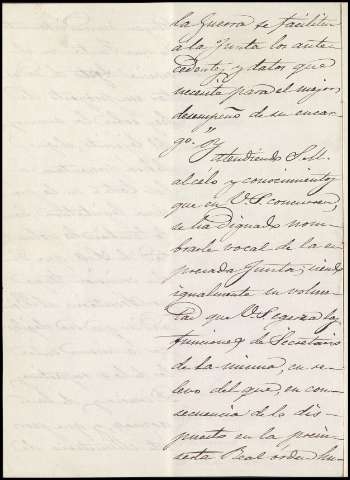 la Guerra se faciliten
a la Junta los ante-
cedentes y datos que
necesite para el mejor
desempeño de su encar-
go." Y
atendiendo S.M.
al celo y conocimientos
que en V.S. concurren,
se ha dignado nom-
brarle vocal de la ex-
presada Junta, siendo
igualmente su volun-
tad que V.S. egerza las
funciones de Secretario
de la misma, en re-
levo del que, en con-
secuencia de lo dis-
puesto en la prein-
serta Real orden hu-